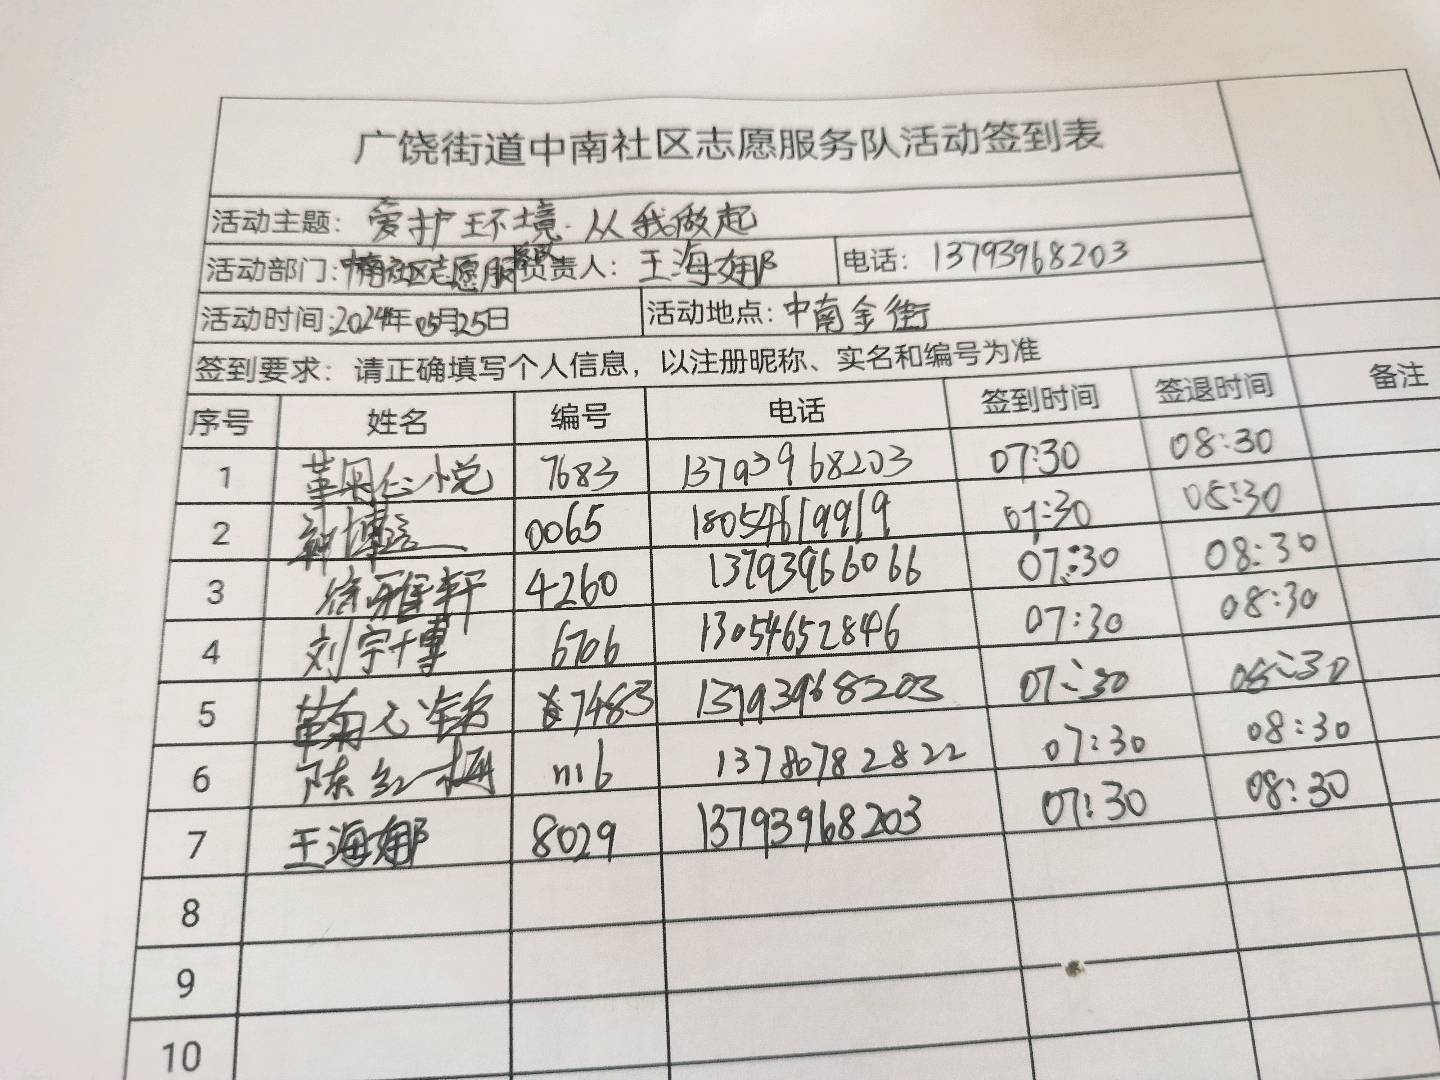 广饶街道中南社区志愿服务队活动签到表
活动主题: 爱护环境·从我做起
活动部门: 中南社区志愿服务队 负责人: 王海娜 电话: 13793968203
活动时间: 2024年05月25日 活动地点: 中南金街
签到要求: 请正确填写个人信息，以注册昵称、实名和编号为准
序号 姓名 编号 电话 签到时间 签退时间 备注
1 7683 13793968203 07:30 08:30
2 0065 18054619919 07:30 08:30
3 徐雅轩 4260 13793966066 07:30 08:30
4 刘宇博 6706 13054652846 07:30 08:30
5 7483 13793968203 07:30 08:30
6 陈红梅 13780782822 07:30 08:30
7 王海娜 8029 13793968203 07:30 08:30
8
9
10